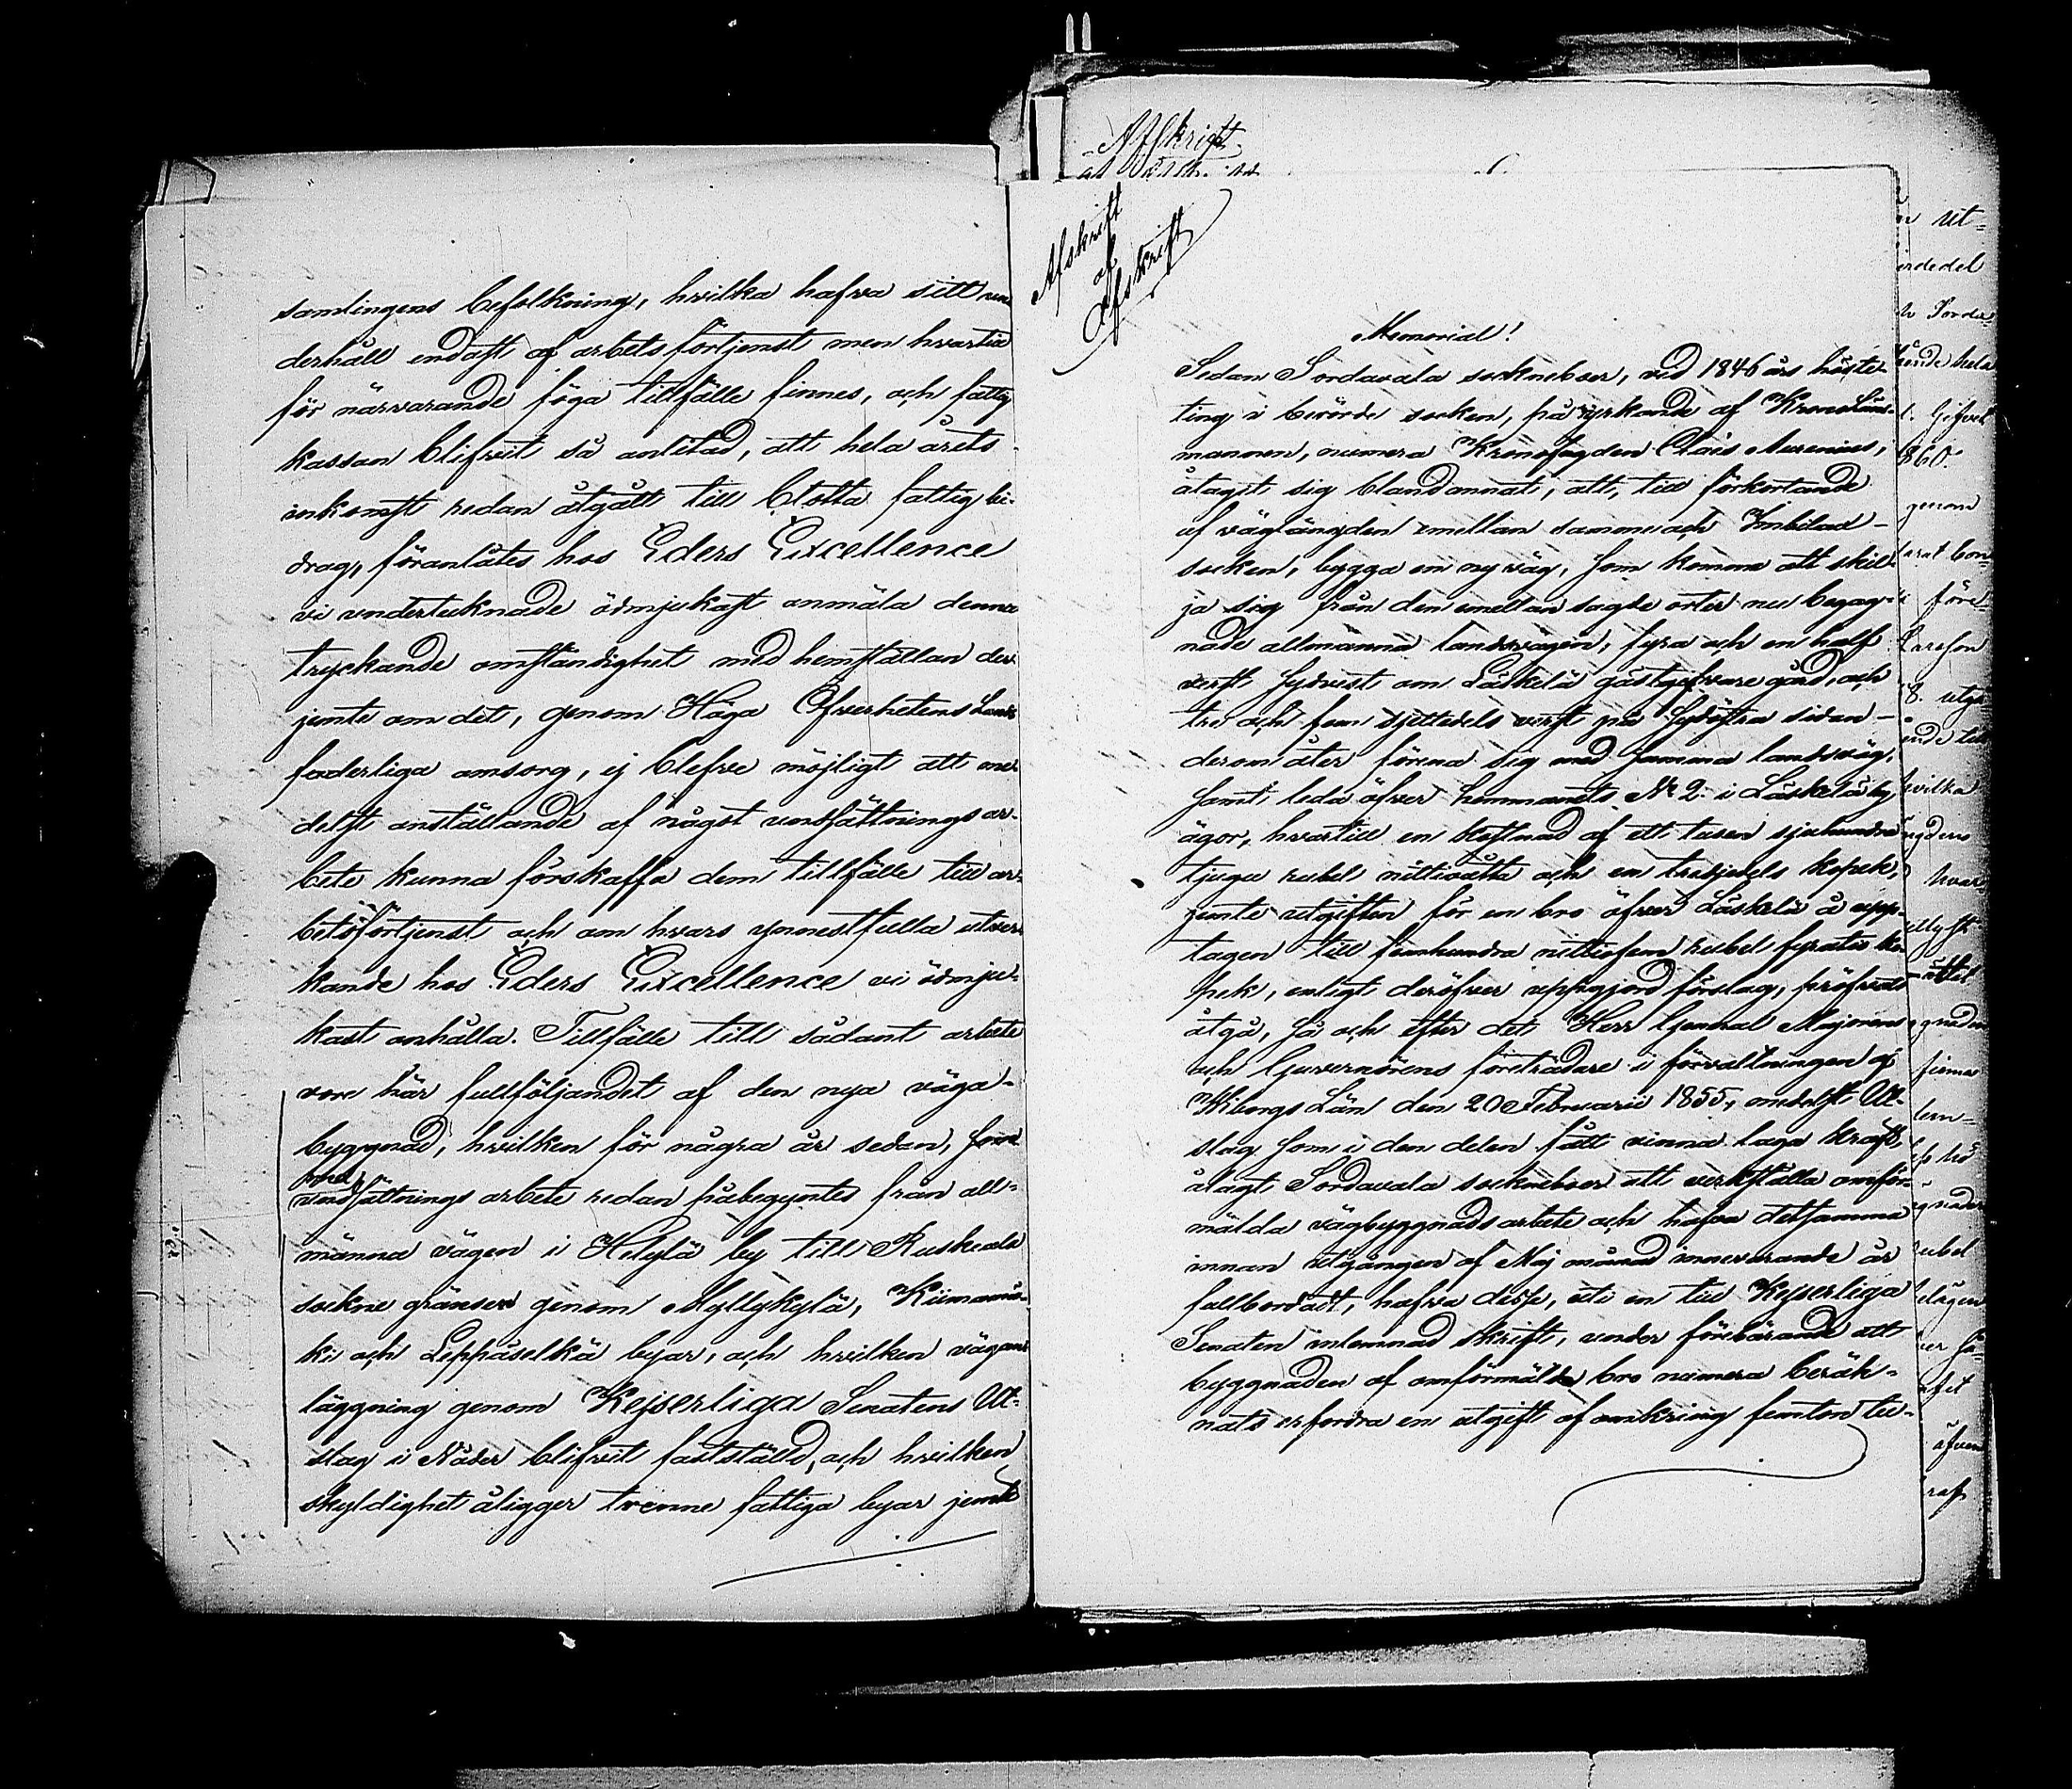 samlingens befolkning, hvilka hafva sitt un
derhåll endast af arbets förtjenst men hvartill
för närvarande föga tillfälle finnes, och fattig
kassan blifvit så anlitad, att hela årets
inkomst redan åtgått till blotta fattig bi-
drag, föranlåtes hos Eders Excellence
vi undertecknade ödmjukast anmäla denna
tryckande omständighet med hemställan der
jemte om det, genom Höga Öfverhetens Lands
faderliga omsorg, ej blefve möjligt att me-
delst anställande af något undsättnings ar-
bete kunna förskaffa dem tillfälle till ar-
betsförtjenst och om hvars ynnestfulla utver
kande hos Eders Excellence vi ödmju-
kast anhålla. Tillfälle till sådant arbete
vore här fullföljandet af den nya väga-
byggnad, hvilken för några år sedan, som
undsättnings arbete redan påbegyntes från all-
männa vägen i Helylä by till Ruskeala
sockne gränsen genom Myllykylä, Kiimamä-
ki och Leppäselkä byar, och hvilken vägan
läggning genom Kejserliga Senatens Ut-
slag i Nåder blifvit fastställd, och hvilken
skyldighet åligger tvenne fattiga byar jemte
Afskrift
Afskrift
af
Afskrift
Memorial!
Sedan Sordavala sockneboer, vid 1846 års höste-
ting i berörde socken, på yrkande af Kronoläns-
mannen, numera Kronofogden Claës Murenius,
åtagit sig blandannat, att, till förkortande
af väglängden emellan samma och Imbilax
socken, bygga en ny väg, som komme att skil-
ja sig från den emellan sagde orter nu begag-
nade allmänna landsvägen, fyra och en half
verst sydvest om Läskelä gästgifvare gård, och
tre och fem sjettedels verst på sydöstra sidan
derom åter förena sig med samma landsväg,
samt leda öfver hemmanets No 2 i Läskelä by
ägor, hvartill en kostnad af ett tusen sjuhundra
tjugu rubel nittioåtta och en tredjedels kopek,
jemte utgiften för en bro öfver Läskelä å upp-
tagen till femhundra nittiofem rubel fyratio ko-
pek, enligt deröfver uppgjord förslag, pröfvats
åtgå, så och efter det Herr General Majorens
och Guvernörens företrädare i förvaltningen af
Wiborgs Län den 20 Februarii 1855, medelst Ut-
slag som i den delen fått vinna laga kraft,
ålagt Sordavala sockneboer att verkställa omför-
mälda vägbyggnads arbete och hafva detsamma
innan utgången af Maj månad innevarande år
fullbordadt, hafva desse, uti en till Kejserliga
Senaten inlemnad skrift, under förebärande att
byggnaden af omförmälda bro numera beräk-
nats erfordra en utgift af omkring femton tu-
ut-
erdedel
hela
860.
genom
utgå
hvilka
hvar
finnas
rubel
äfven